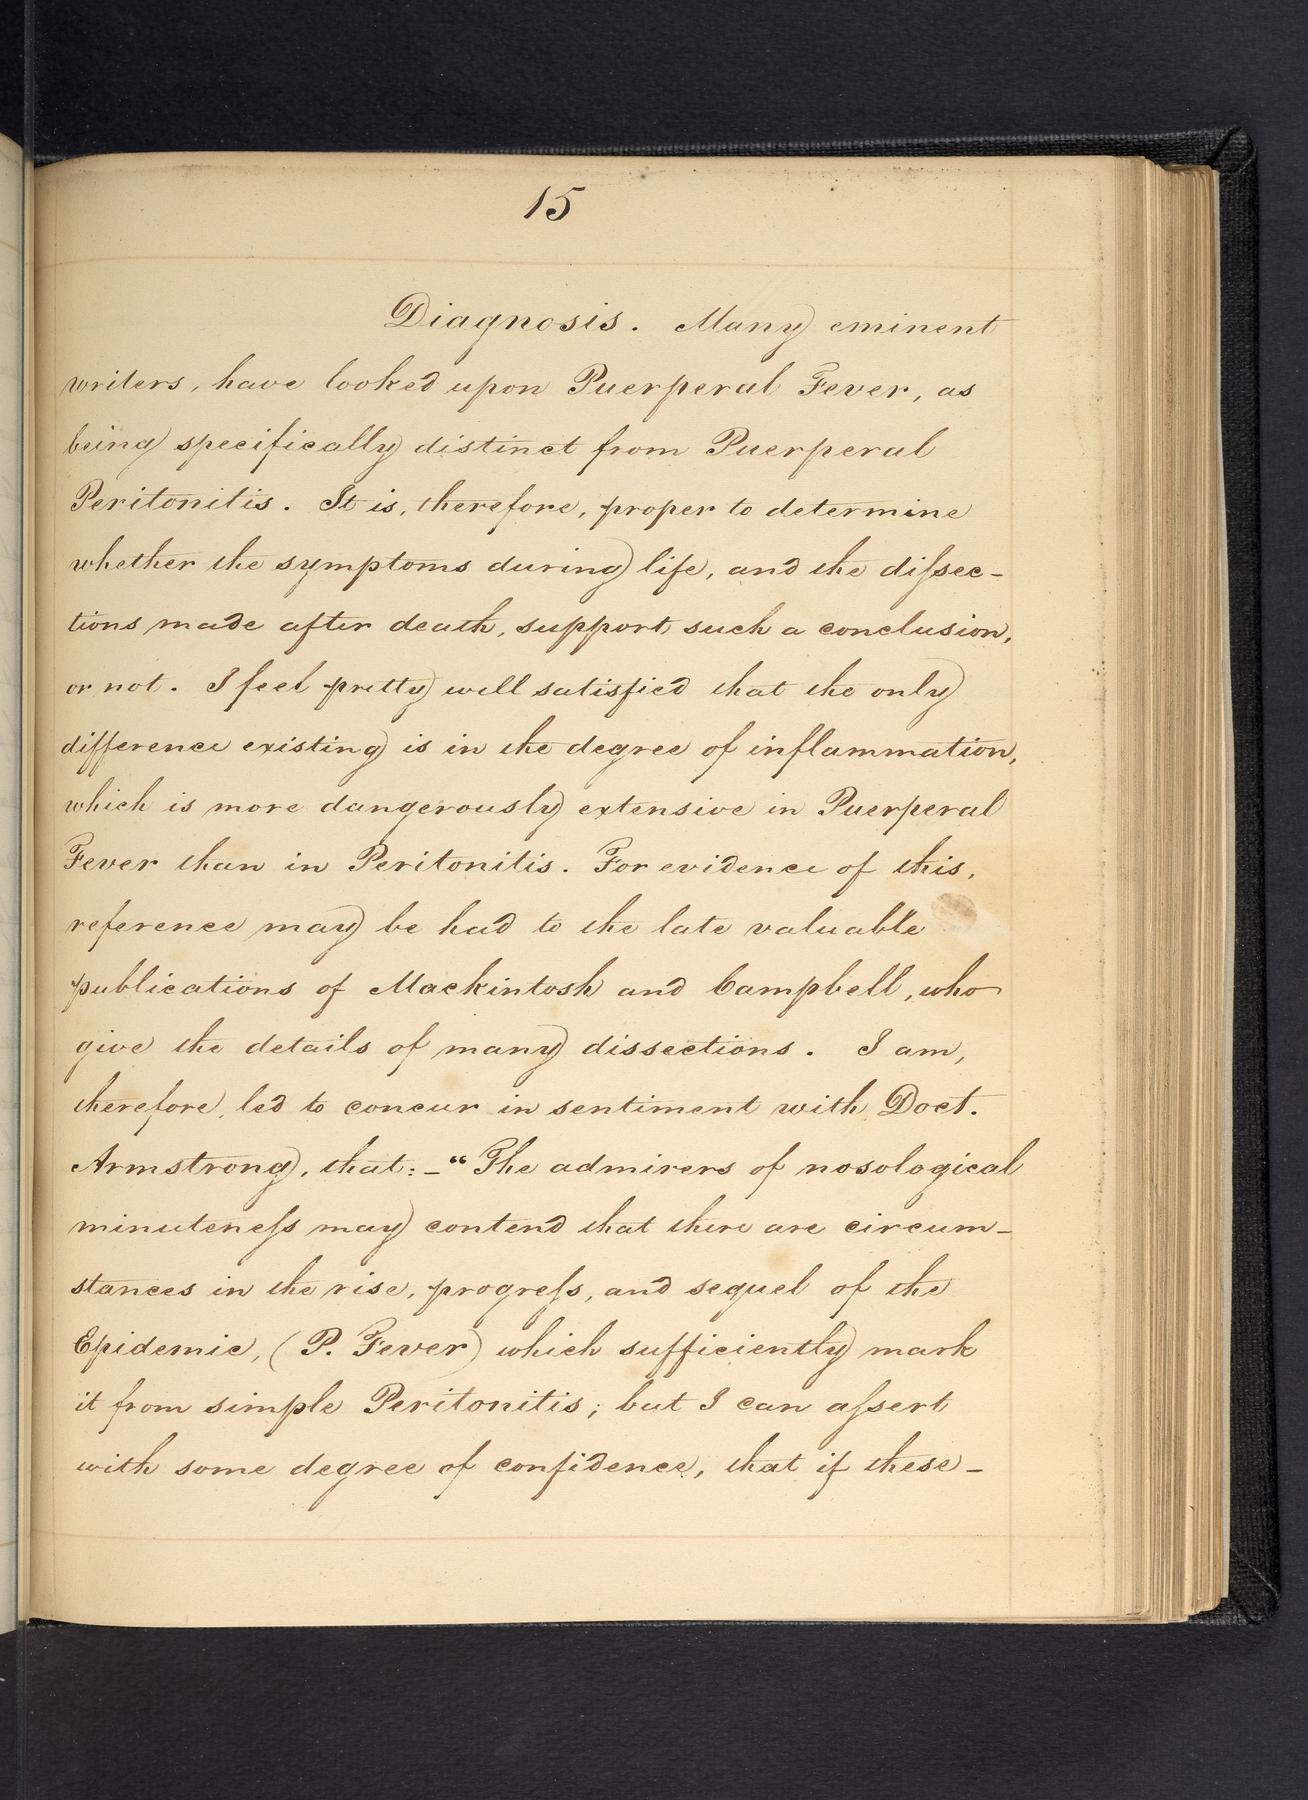 15
Diagnosis. Many eminent
writers, have looked upon Puerperal Fever, as
being specifically distinct from Puerperal
Peritonitis. It is, therefore, proper to determine
whether the symptoms during life, and the diſsec-
tions made after death, support such a conclusion,
or not. I feel pretty well satisfied that the only
difference existing is in the degree of inflammation,
which is more dangerously extensive in Puerperal
Fever than in Peritonitis. For evidence of this,
reference may be had to the late valuable
publications of Mackintosh and Campbell, who
give the details of many dissections. I am,
therefore, led to concur in sentiment with Doct.
Armstrong, that:-“The admirers of nosological
minuteneſs may contend that there are circum-
stances in the rise, progreſs, and sequel of the
Epidemic, (P. Fever) which sufficiently mark
it from simple Peritonitis; but I can aſsert
with some degree of confidence, that if these-